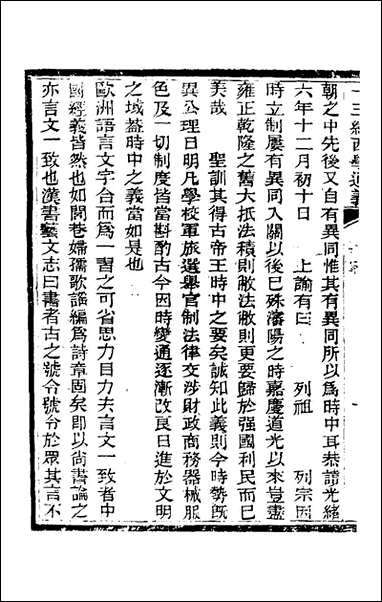 十三經西學通義
朝之中先後又自有異同惟其有異同所以爲時中耳恭讀光緒
六年十二月初十日　上諭有曰　列祖　列宗因
時立制屢有異同入關以後已殊瀋陽之時嘉慶道光以來豈盡
雍正乾隆之舊大抵法積則敝法敝則更要歸於强國利民而已
美哉　聖訓其得古帝王時中之要矣誠知此義則今時勢旣
異公理日明凡學校軍旅選舉官制法律交涉財政商務器械服
色及一切制度皆當斟酌古今因時變通逐漸改良日進於文明
之域蓋時中之義當如是也
歐洲語言文字合而爲一習之可省思力目力夫言文一致者中
國經義皆然也如閭巷婦孺歌謠編爲詩章固矣卽以尚書論之
亦言文一致也漢書藝文志曰書者古之號令號令於眾其言不